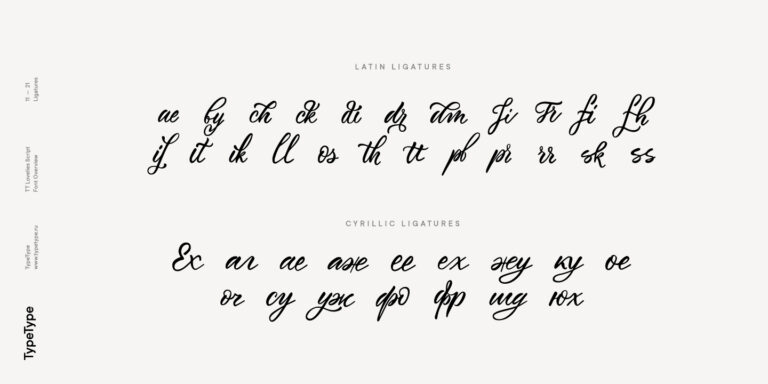 11 — 21
Ligatures
TT Lovelies Script
Font Overview
TypeType
www.typetype.ru
TypeType
LATIN LIGATURES
ae by ch ck di dr dm fi Fr fi fh
if it ik ll os th tt pl pr rr sk ss
CYRILLIC LIGATURES
Ех ал ае аж ее ех жу ку ое
оч су уж фо фр шд юх